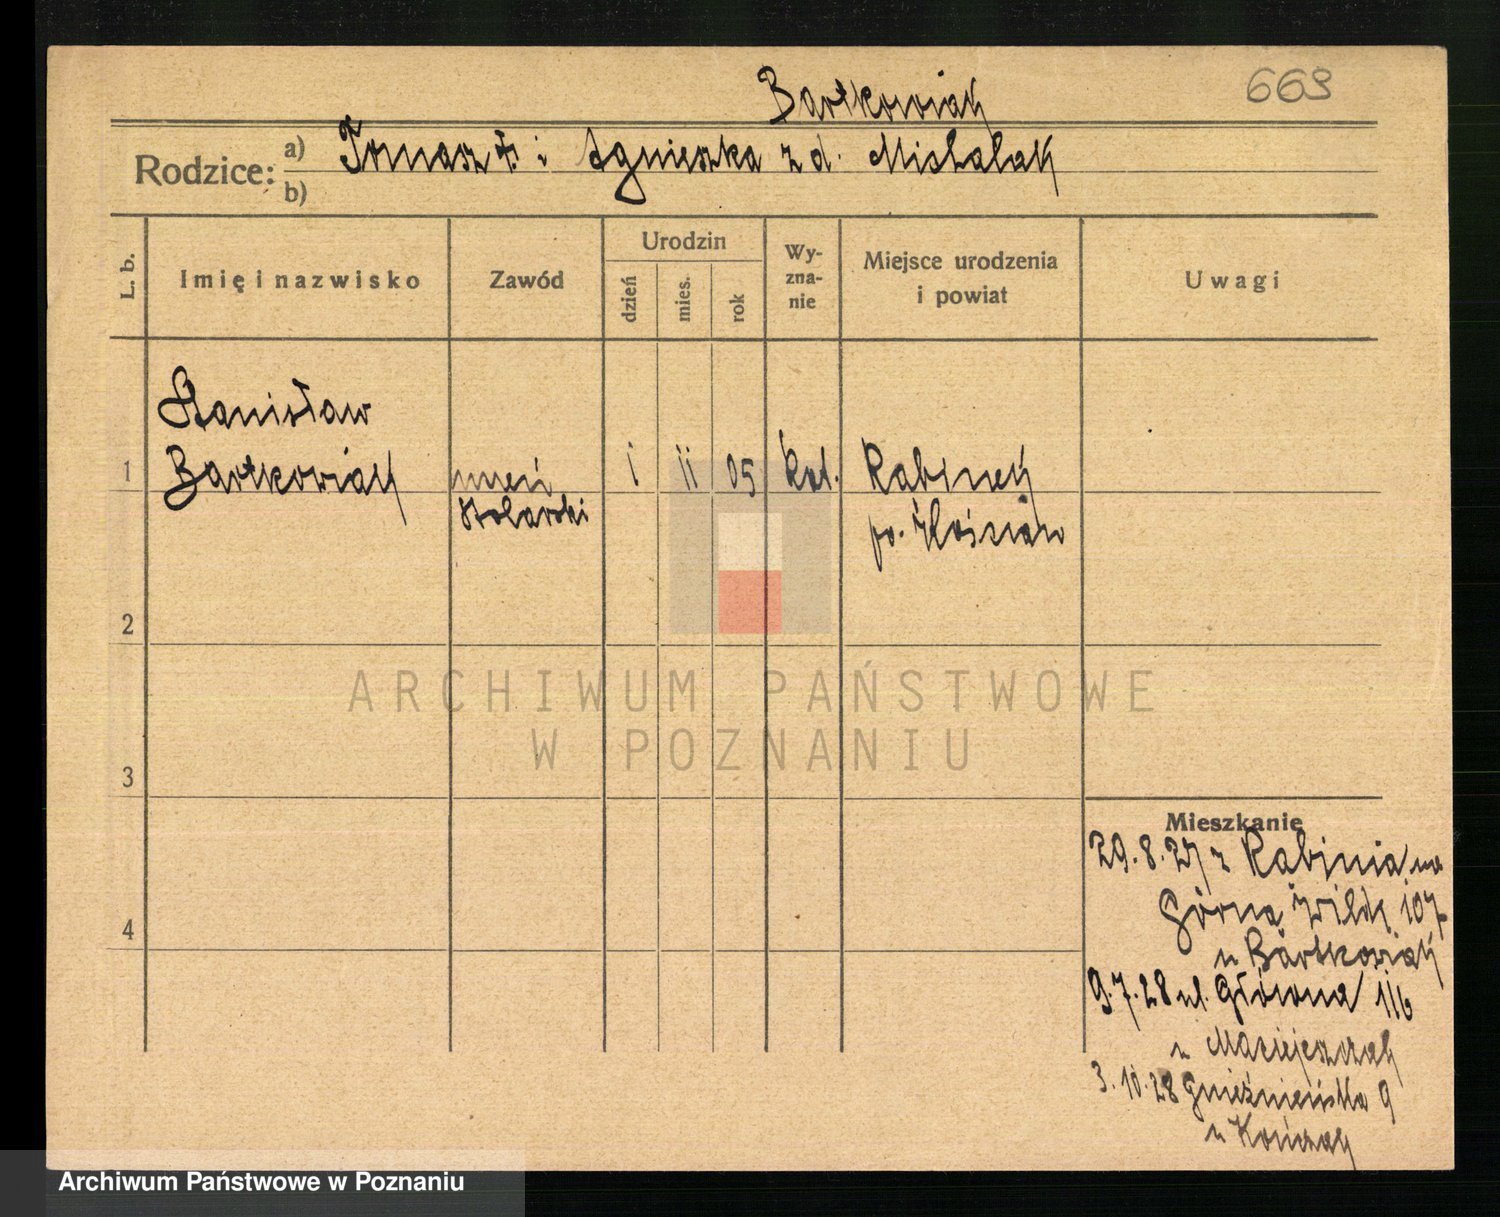 Bartkowiak
669
Rodzice: a) Tomasz † i Agnieszka z d. Michalak
b)
L. b.
Imię i nazwisko
Zawód
Urodzin
dzień
mies.
rok
Wy-
zna-
nie
Miejsce urodzenia
i powiat
Uwagi
Stanisław
1 Bartkowiak uczeń 1 11 05 kat. Rabiń
stolarski po. Kościan
2
3
4
Mieszkanie
29.8.27 z Rabinia na
Górna Wilda 107
u Bartkowiak
9.7.28 ul. Główna
u Maciejczak
3.10.28 Gnieźnieńska 9
u
ARCHIWUM PAŃSTWOWE
W POZNANIU
Archiwum Państwowe w Poznaniu